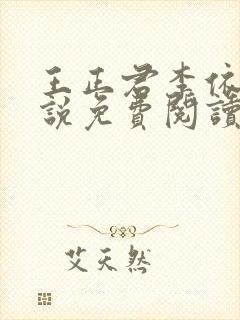 王正君李依
說免費閱讀
艾天然